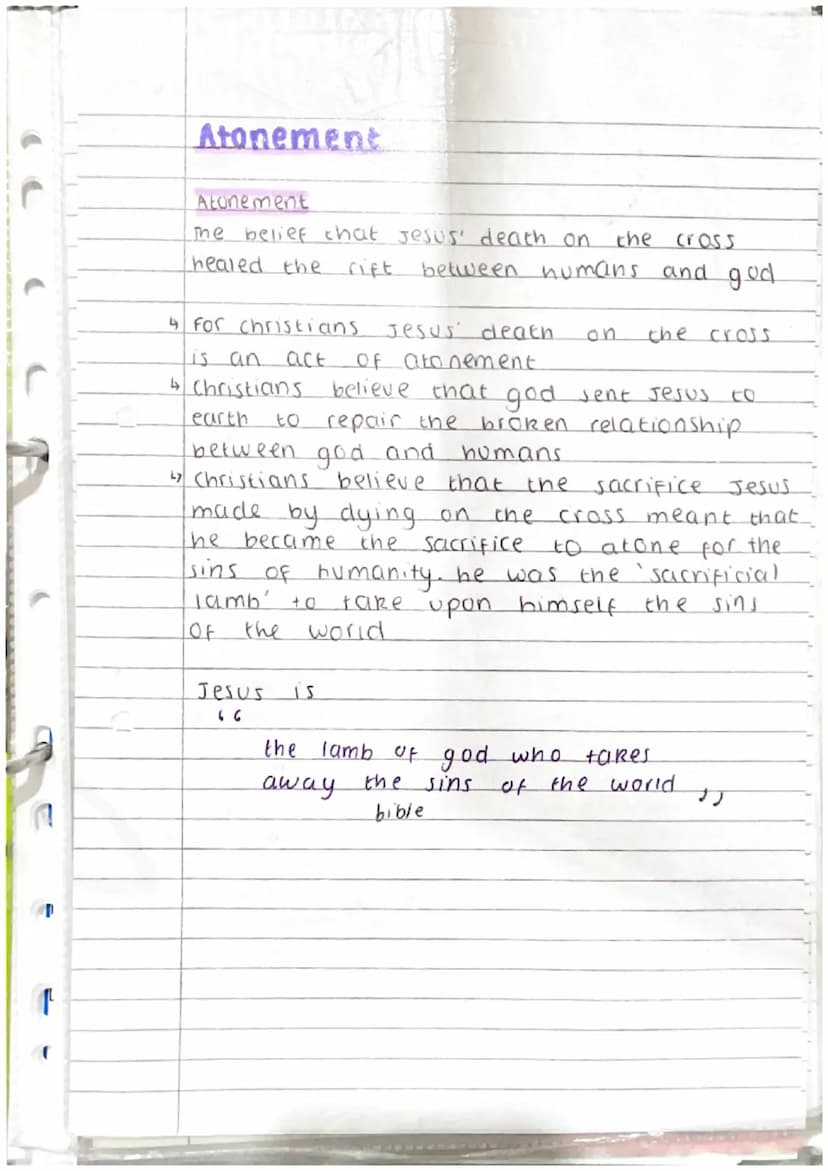 Atonement
Atonement
The belief that Jesus' death on the cross
healed the rift between humans and god
↳ For christians Jesus' death on the cross
is an act of atonement
↳ Christians believe that god sent Jesus to
earth to repair the broken relationship
between god and humans
↳ Christians believe that the sacrifice Jesus
made by dying on the cross meant that
he became the sacrifice to atone for the
sins of humanity. he was the 'sacrificial
lamb' to take upon himself the sins
of the world
Jesus is
“
the lamb of god who takes
away the sins of the world ”
bible